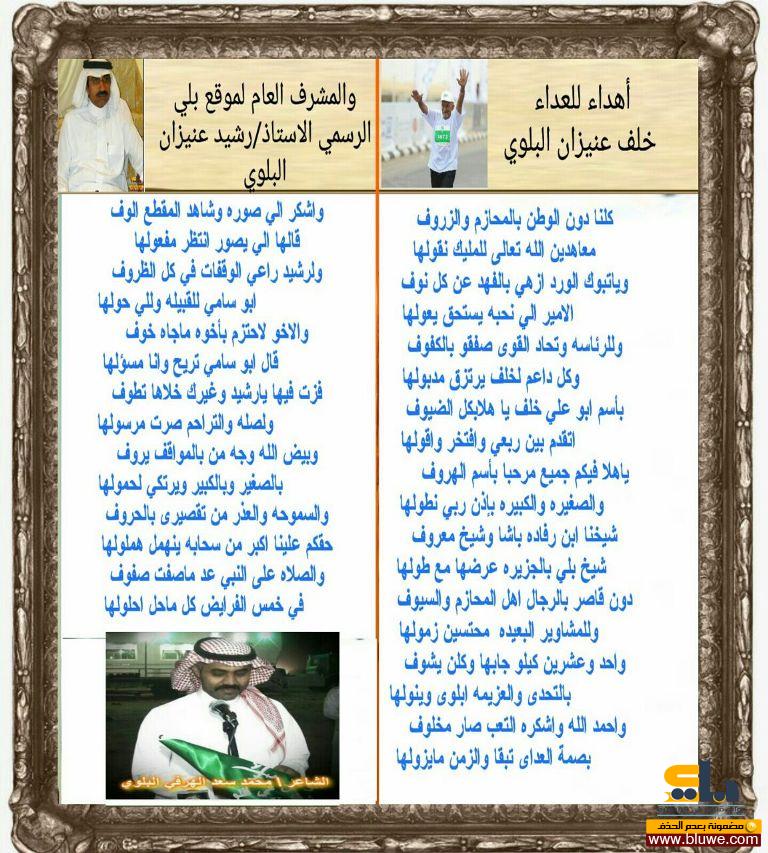 أهداء للعداء
خلف عنيزان البلوي
كلنا دون الوطن بالمحازم والزروف
معاهدين الله تعالى للمليك نقولها
وياتبوك الورد ازهي بالفهد عن كل نوف
الامير الي نحبه يستحق يعولها
وللرئاسه وتحاد القوى صفقو بالكفوف
وكل داعم لخلف يرتزق مدبولها
بأسم ابو علي خلف يا هلابكل الضيوف
اتقدم بين ربعي وافتخر واقولها
ياهلا فيكم جميع مرحبا بأسم الهروف
والصغيره والكبيره بإذن ربي نطولها
شيخنا ابن رفاده باشا وشيخ معروف
شيخ بلي بالجزيره عرضها مع طولها
دون قاصر بالرجال اهل المحازم والسيوف
وللمشاوير البعيده محتسين زمولها
واحد وعشرين كيلو جابها وكلن يشوف
بالتحدى والعزيمه ابلوى وينولها
واحمد الله واشكره التعب صار مخلوف
بصمة العداى تبقا والزمن مايزولها
والمشرف العام لموقع بلي
الرسمي الاستاذ/رشيد عنيزان
البلوي
واشكر الي صوره وشاهد المقطع الوف
قالها الي يصور انتظر مفعولها
ولرشيد راعي الوقفات في كل الظروف
ابو سامي للقبيله وللي حولها
والاخو لاحتزم بأخوه ماجاه خوف
قال ابو سامي تريح وانا مسؤلها
فزت فيها يارشيد وغيرك خلاها تطوف
ولصله والتراحم صرت مرسولها
وبيض الله وجه من بالمواقف يروف
بالصغير وبالكبير ويرتكي لحمولها
والسموحه والعذر من تقصيرى بالحروف
حقكم علينا اكبر من سحابه ينهمل هملولها
والصلاه على النبي عد ماصفت صفوف
في خمس الفرايض كل ماحل احلولها
الشاعر / محمد سعد الهرفي البلوي
مضمونة بعدم الحذف
www.bluwe.com